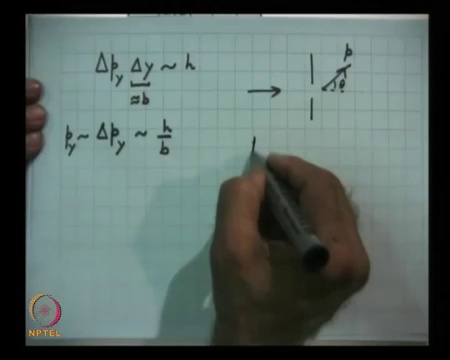 Δp_y Δy ~ h
≈b
p_y ~ Δp_y ~ h/b
p
θ
NPTEL